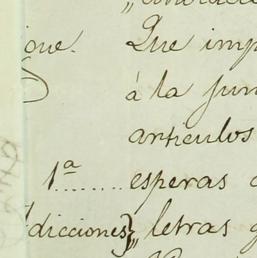 que. Que imp
á la jun
articulos
1ª........ esperas
dicciones}„ letras